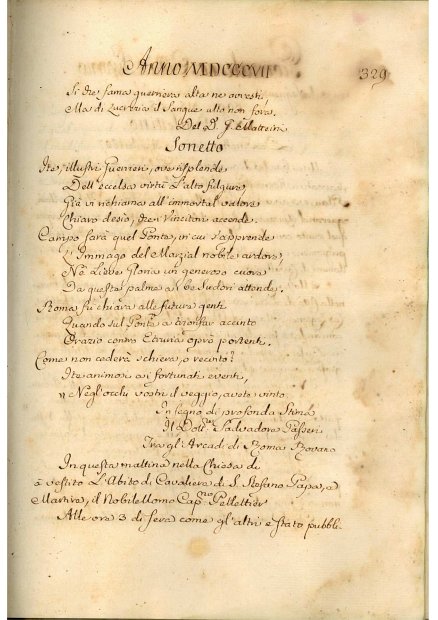 Anno MDCCCVII 329
Si die' fama guerriera alta ne avresti
Ma di Lucrezia il Sangue ulto non fora.
Del D. G. Matteini
Sonetto
Ite, illustri Guerrieri, ove risplende
Dell'eccelsa virtù l'alto fulgure,
Già vi richiama all'immortal valore
Chiaro desio, che i Vincitori accende.
Campo sarà quel Ponte, in cui s'apprende
L'Immago del Marzial nobile ardore,
Nè Lieve gloria un generoso cuore
Da questa palma a be' Sudori attende.
Roma fu chiara alle future genti
Quando sul Ponte a trionfar accinto
Orazio contro Etruria oprò portenti.
Come non cederà schiera, o recinto?
Ite animosi ai fortunati eventi,
Negl'occhi vostri il veggio, avete vinto
In segno di profonda Stima
Il Dott. Salvadore Passeri
Tra gl'Arcadi di Roma
In questa mattina nella Chiesa di
à vestito L'Abito di Cavaliere di S. Stefano Papa, e
Martire, il Nobil Uomo Cap. Pellettier
Alle ore 3 di sera come gl'altri è stato pubbli